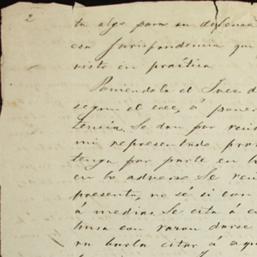 2
tu algo para su defensa
con Jurispandencia que
visto en práitica
Poniendola el Juez d
segun el caso, á poner
tencia. Se dan por
mi representado pro
tenga por parte en
en lo adverso Se
presenta, no sé si con
á medias Se cita á
busa con razon darse
su busla citar á aque